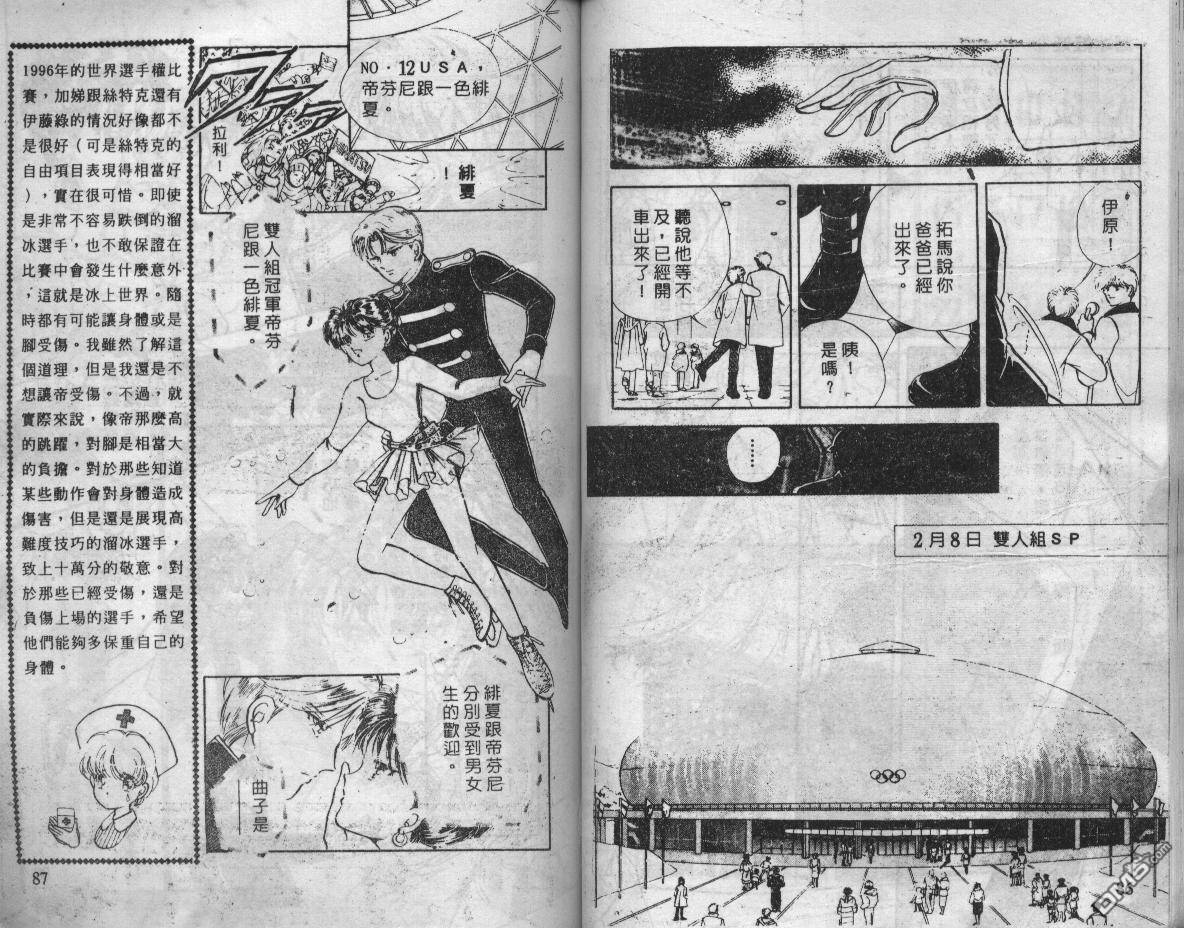 伊原！
拓馬說你
爸爸已經
出來了。
咦！
是嗎？
聽說他等不
及，已經開
車出來了！
……
2月8日 雙人組ＳＰ
NO．12ＵＳＡ，
帝芬尼跟一色緋
夏。
緋夏
！
拉利！
雙人組冠軍帝芬
尼跟一色緋夏。
緋夏跟帝芬尼
分別受到男女
生的歡迎。
曲子是
──
1996年的世界選手權比
賽，加娣跟絲特克還有
伊藤綠的情況好像都不
是很好（可是絲特克的
自由項目表現得相當好
），實在很可惜。即使
是非常不容易跌倒的溜
冰選手，也不敢保證在
比賽中會發生什麼意外
，這就是冰上世界。隨
時都有可能讓身體或是
腳受傷。我雖然了解這
個道理，但是我還是不
想讓帝受傷。不過，就
實際來說，像帝那麼高
的跳躍，對腳是相當大
的負擔。對於那些知道
某些動作會對身體造成
傷害，但是還是展現高
難度技巧的溜冰選手，
致上十萬分的敬意。對
於那些已經受傷，還是
負傷上場的選手，希望
他們能夠多保重自己的
身體。
87
DM5.com